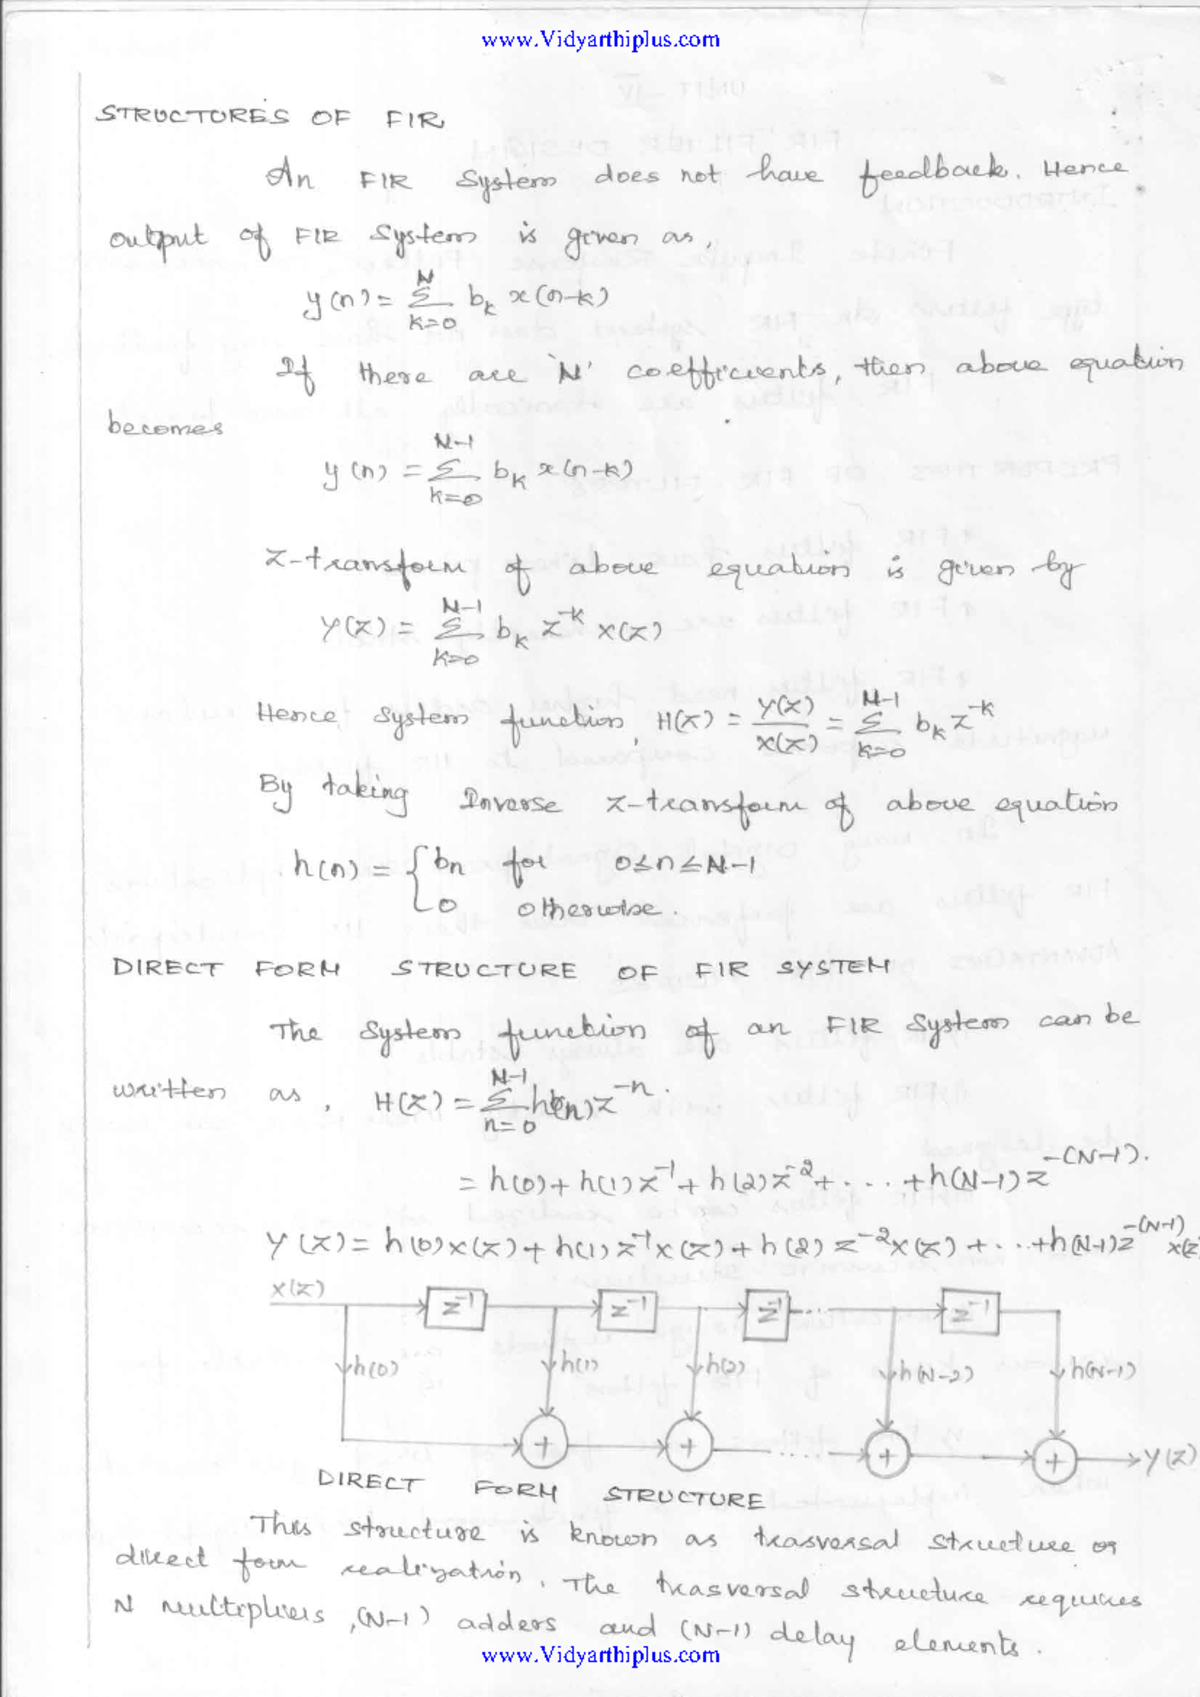 www.Vidyarthiplus.com
STRUCTURES OF FIR
An FIR System does not have feedback. Hence
output of FIR System is given as,
y(n) = Σ_{k=0}^{N} b_k x(n-k)
If there are 'N' coefficients, then above equation
becomes
y(n) = Σ_{k=0}^{N-1} b_k x(n-k)
z-transform of above equation is given by
Y(z) = Σ_{k=0}^{N-1} b_k z^{-k} X(z)
Hence, System function, H(z) = Y(z)/X(z) = Σ_{k=0}^{N-1} b_k z^{-k}
By taking Inverse z-transform of above equation
h(n) = { b_n for 0≤n≤N-1
0 otherwise.
DIRECT FORM STRUCTURE OF FIR SYSTEM
The System function of an FIR System can be
written as, H(z) = Σ_{n=0}^{N-1} h(n) z^{-n}.
= h(0) + h(1) z^{-1} + h(2) z^{-2} + ... + h(N-1) z^{-(N-1)}.
Y(z) = h(0) x(z) + h(1) z^{-1} x(z) + h(2) z^{-2} x(z) + ... + h(N-1) z^{-(N-1)} x(z
x(z)
z^{-1} z^{-1} z^{-1} ... z^{-1}
h(0) h(1) h(2) h(N-2) h(N-1)
+ + .... + + Y(z)
DIRECT FORM STRUCTURE
This structure is known as trasversal structure or
direct form realization. The trasversal structure requires
N multipliers, (N-1) adders and (N-1) delay elements.
www.Vidyarthiplus.com